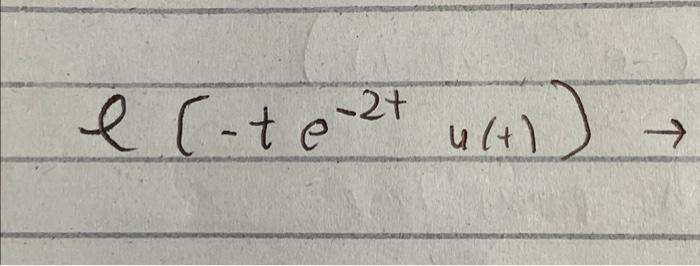 ℒ [-t e^{-2t} u(t)] →